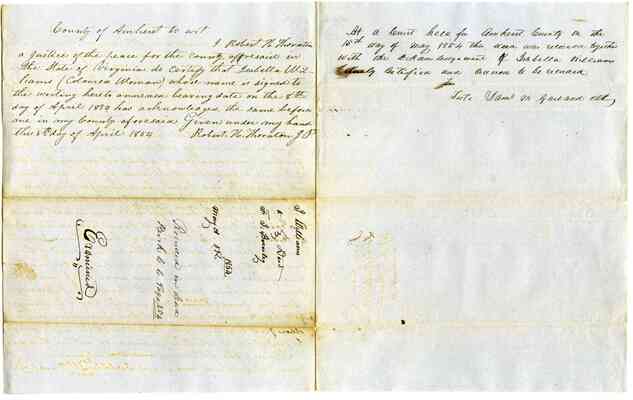 County of Amherst to wit
I Robert H. Thornton
a justice of the peace for the county aforesaid in
the State of Virginia do certify that Isabella Wil
liams (Coloured Woman) whose name is signed to
the writing hereto annexed bearing date on the 8th
day of April 1854 has acknowledged the same before
me in my County aforesaid Given under my hand
this 8th day of April 1854
Robert H. Thornton J.P.
At a Court held for Amherst County on the
15th day of May 1854 this deed was received together
with the acknowledgment of Isabella Williams
certified and to be recorded
Teste Saml M Garland
I Williams
Deed
To
May 1854
Recorded in Deed
Book
Examined